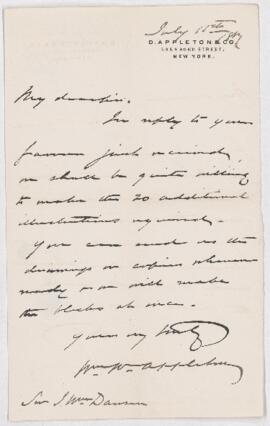 July 11th
D. APPLETON & CO.
1, 3 & 5 BOND STREET,
NEW YORK.
My dear Sir.
In reply to your
favour just received,
we shall be quite willing
to make the 20 additional
illustrations required.
You can send us the
drawings or copies whenever
ready & we will make
the blocks at once.
Yours very truly
Wm W. Appleton
Sir J Wm Dawson